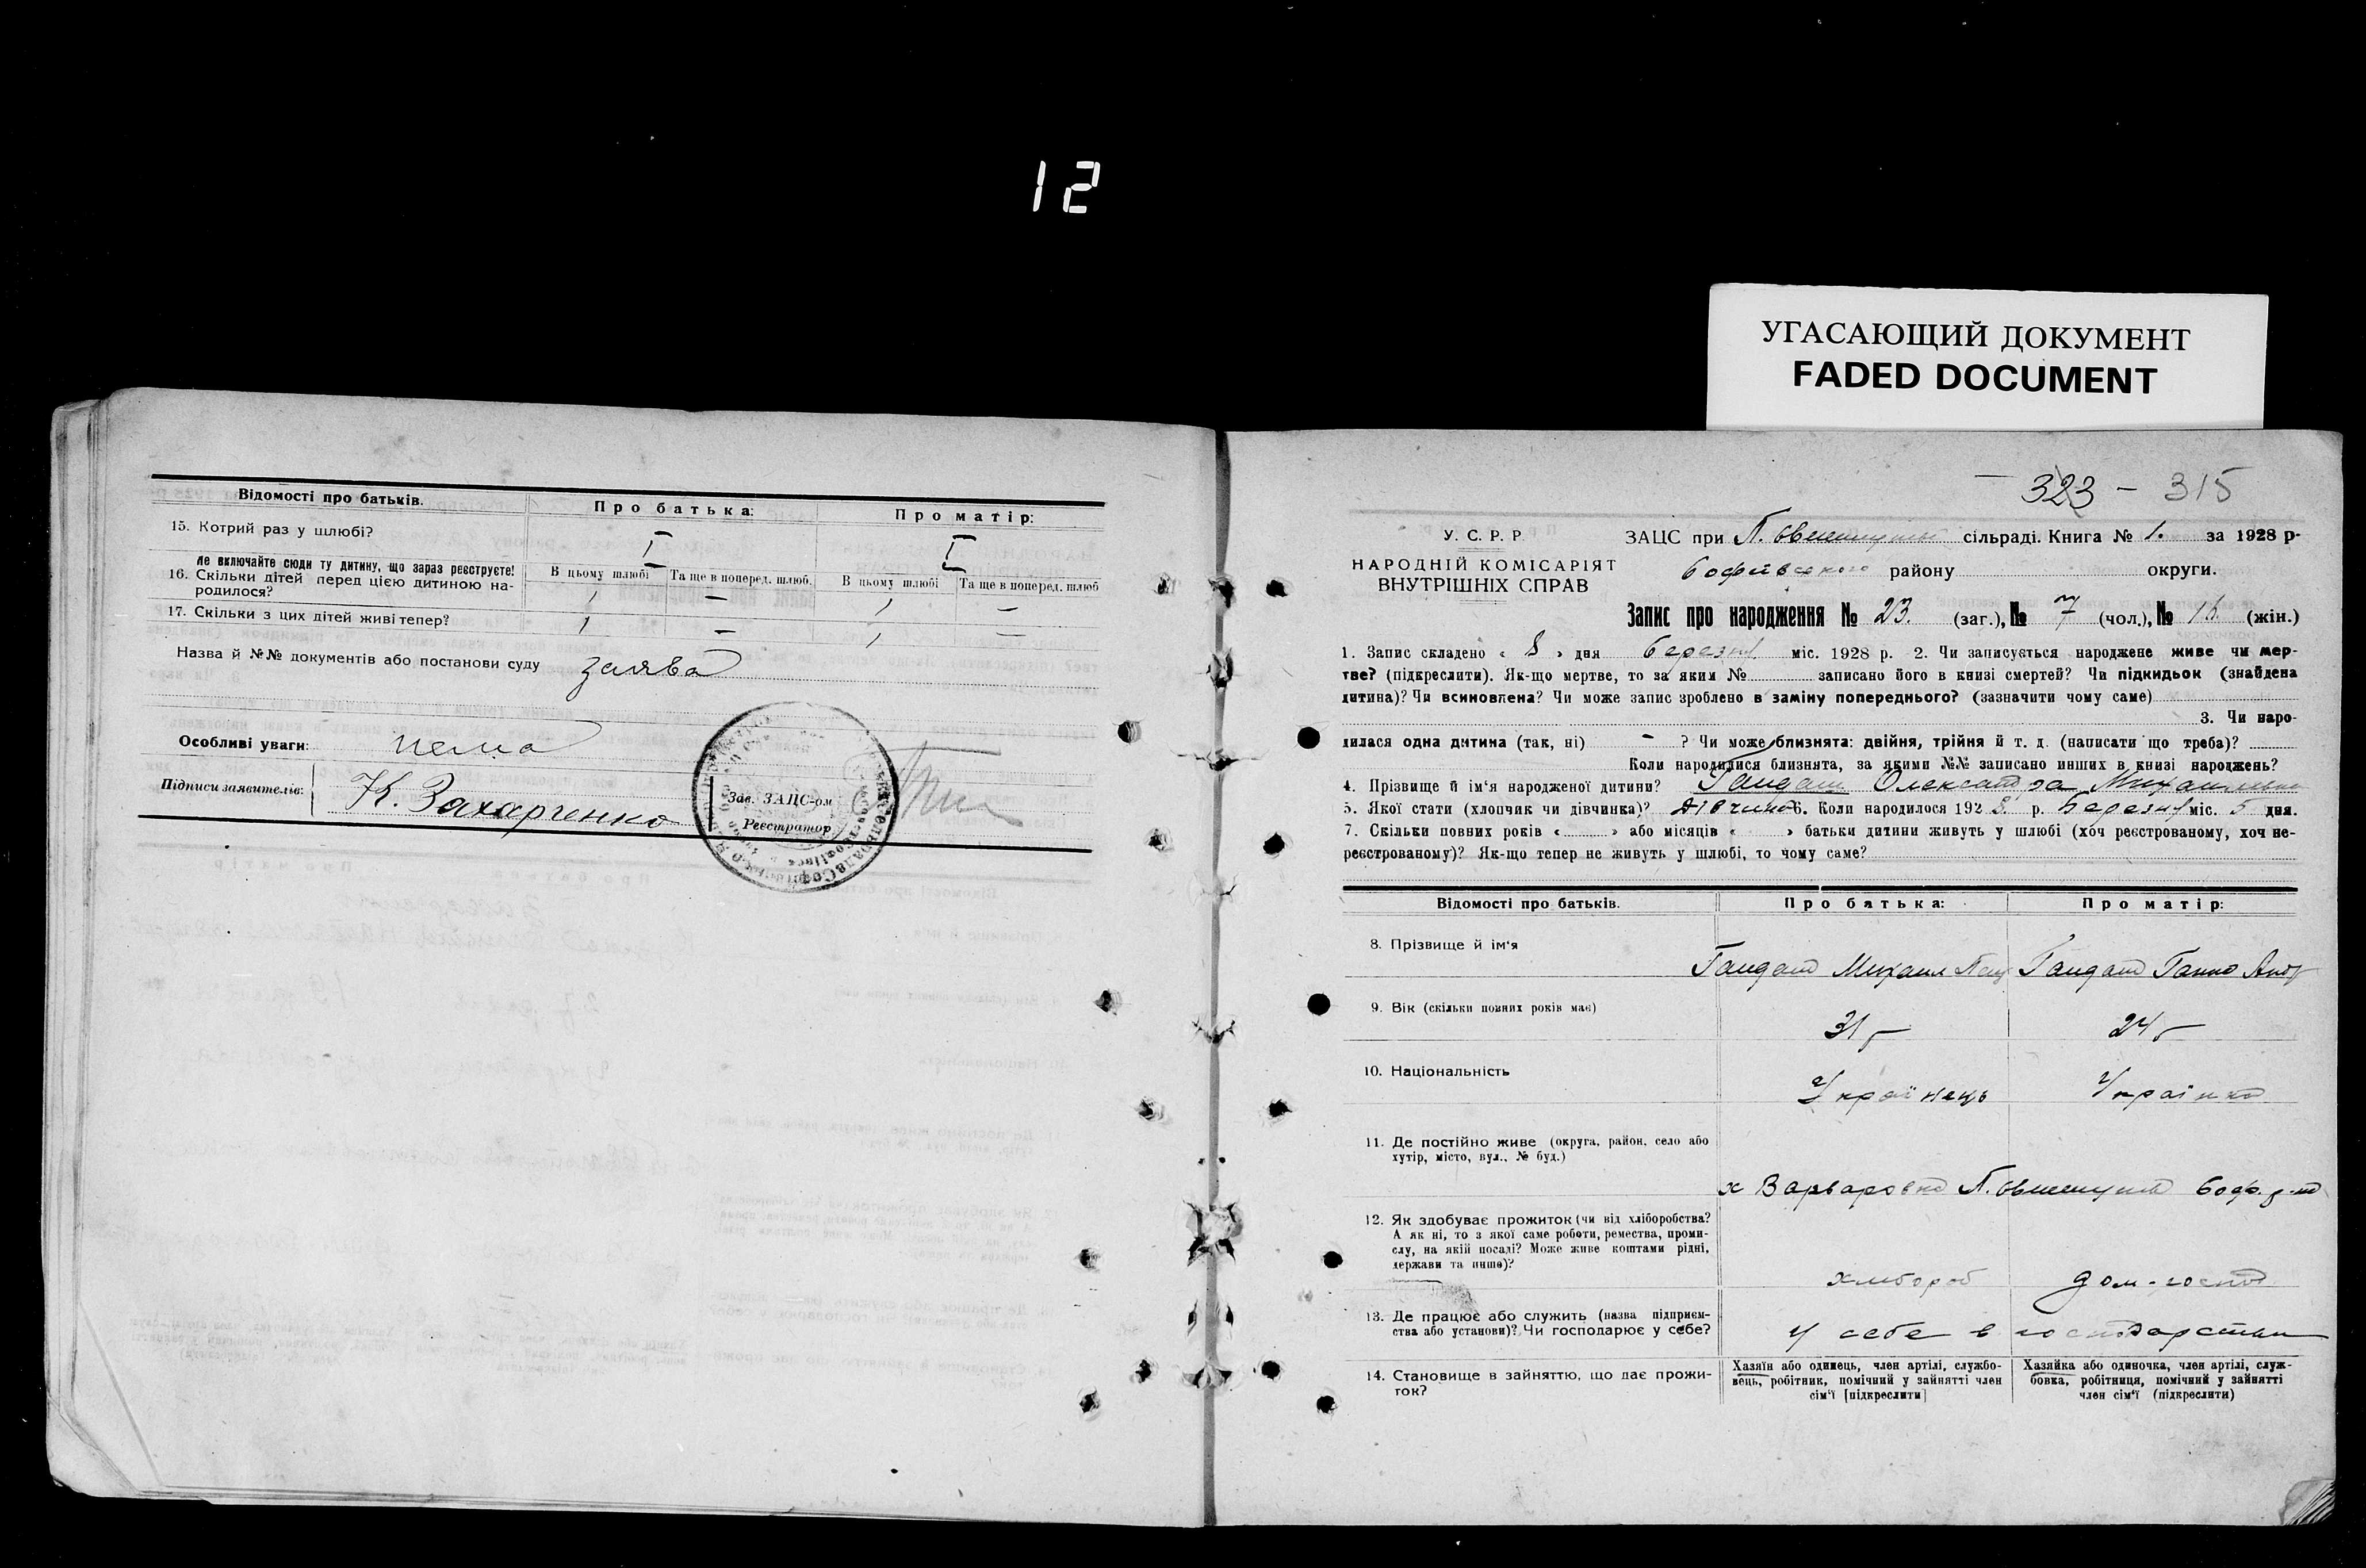 12
УГАСАЮЩИЙ ДОКУМЕНТ
FADED DOCUMENT
Відомості про батьків.
Про батька:
Про матір:
15. Котрий раз у шлюбі?
I
I
Не включайте сюди ту дитину, що зараз реєструєте!
16. Скільки дітей перед цією дитиною на-
родилося?
В цьому шлюбі
Та ще в поперед. шлюб.
В цьому шлюбі
Та ще в поперед. шлюб
1
—
1
—
17. Скільки з цих дітей живі тепер?
1
—
1
—
Назва й №№ документів або постанови суду
заява
Особливі уваги:
нема
Підписи заявителів:
К. Захарченко
Зав. ЗАЦС-ом
Реєстратор
323 - 315
У. С. Р. Р
НАРОДНІЙ КОМІСАРІЯТ
ВНУТРІШНІХ СПРАВ
ЗАЦС при сільраді. Книга № 1. за 1928 р-
Софиевського району округи.
Запис про народження № 23. (заг.), № 7 (чол.), № 16. (жін.)
1. Запис складено « 8 » дня березня міс. 1928 р. 2. Чи записується народжене живе чи мер-
тве? (підкреслити). Як-що мертве, то за яким № записано його в книзі смертей? Чи підкидьок (знайдена
дитина)? Чи всиновлена? Чи може запис зроблено в заміну попереднього? (зазначити чому саме)
3. Чи наро-
дилася одна дитина (так, ні) - ? Чи може близнята: двійня, трійня й т. д. (написати що треба)?
Коли народилися близнята, за якими №№ записано инших в книзі народжень?
4. Прізвище й ім'я народженої дитини? Гандаш Олександра Михайловна
5. Якої стати (хлопчик чи дівчинка)? Дівчина 6. Коли народилося 192 8 р. Березня міс. 5 дня.
7. Скільки повних років « » або місяців « » батьки дитини живуть у шлюбі (хоч реєстрованому, хоч не-
реєстрованому)? Як-що тепер не живуть у шлюбі, то чому саме?
Відомості про батьків.
Про батька:
Про матір:
8. Прізвище й ім'я
Михаил
Ганна Андр
9. Вік (скільки повних років має)
31 г
24 г
10. Національність
Українець
Українка
11. Де постійно живе (округа, район, село або
хутір, місто, вул., № буд.)
х Варваровка Соф. р-на
12. Як здобуває прожиток (чи від хліборобства?
А як ні, то з якої саме роботи, ремества, проми-
слу, на якій посаді? Може живе коштами рідні,
держави та инше)?
хлібороб
дом-госпо
13. Де працює або служить (назва підприєм-
ства або установи)? Чи господарює у себе?
у себе в господарстві
14. Становище в зайняттю, що дає прожи-
ток?
Хазяїн або одинець, член артілі, службо-
вець, робітник, помічний у зайнятті член
сім'ї [підкреслити]
Хазяйка або одиночка, член артілі, служ-
бовка, робітниця, помічний у зайнятті
член сім'ї (підкреслити)